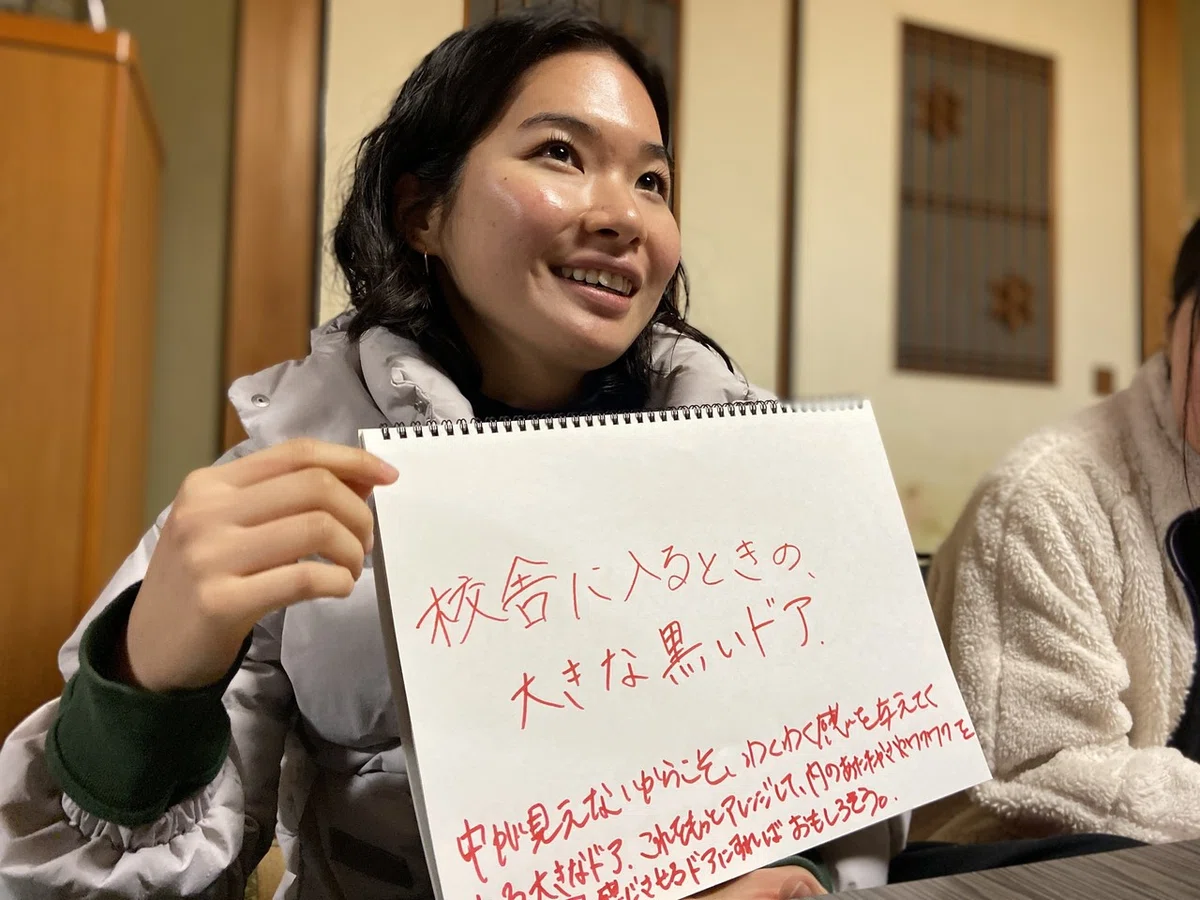 校舎に入るときの、
大きな黒いドア.
中が見えないからこそ、わくわく感を与えてく
る大きなドア. これをもっとアレンジして、内のあたたかさやワクワクを
感じさせるドアにすればおもしろそう。